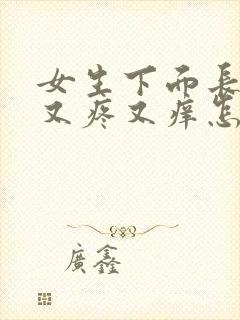 女生下面長
又疼又痒怎
廣鑫